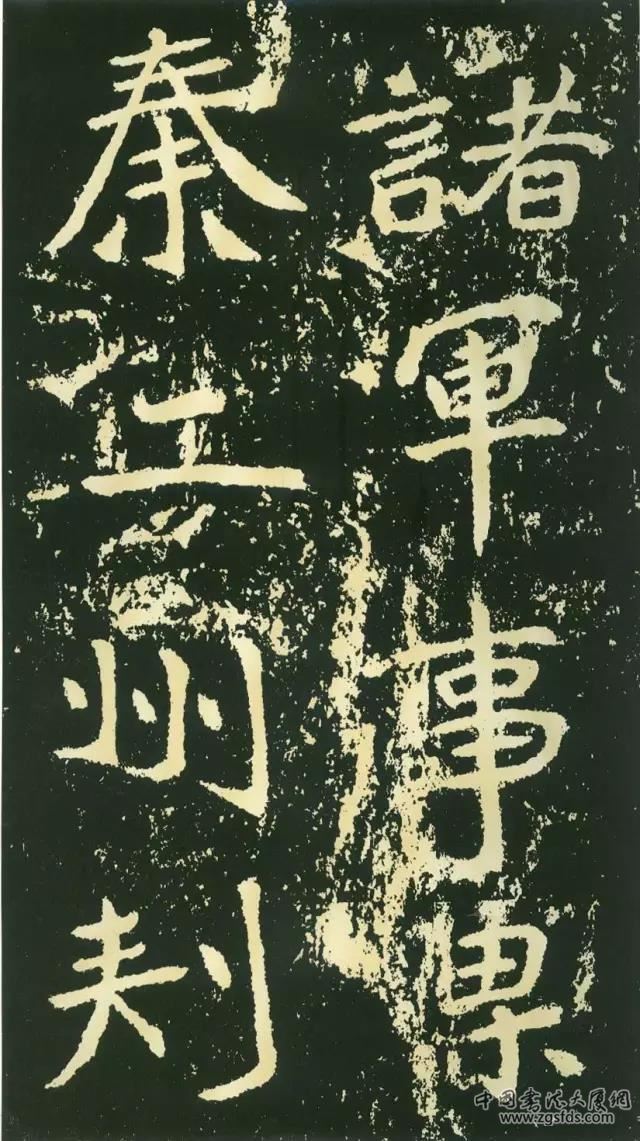 諸軍事梁
秦二州刺
中国书法大厦网
www.zgsfds.com